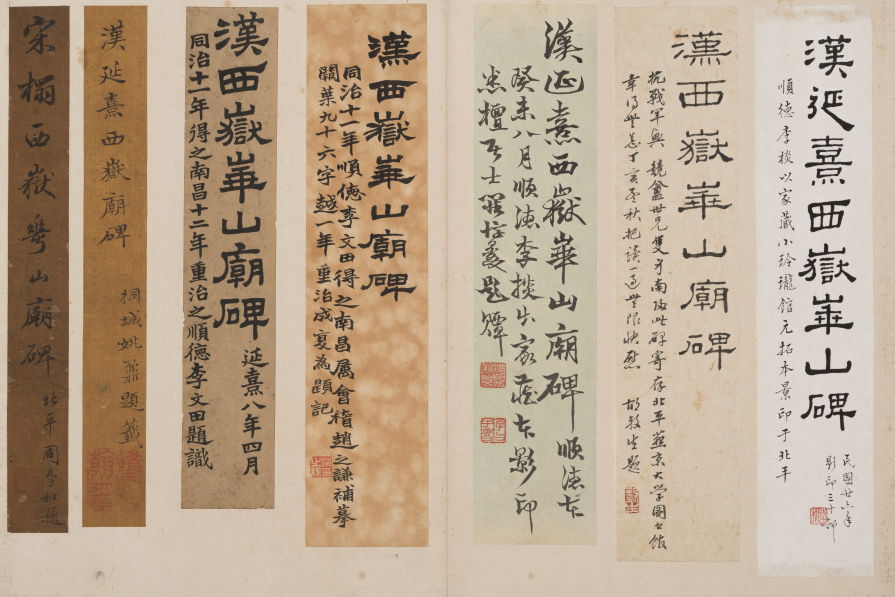 漢延熹西嶽崋山碑
順德李棪以家藏小玲瓏館元拓本景印于北平
民國廿六年
影印三十部
漢西嶽崋山廟碑
抗戰軍興
競盦世兄雙手南歸此碑寄存北平燕京大學圖書館
幸得無恙丁亥孟秋把讀一過無限快慰
胡毅生題
漢延熹西嶽崋山廟碑
順德本
癸未八月順德李棪出家藏本影印
漢西嶽崋山廟碑
同治十一年順德李文田得之南昌屬會稽趙之謙補摹
闕葉九十六字越一年重治成裝為題記
漢西嶽崋山廟碑
延熹八年四月
同治十一年得之南昌十二年重治之順德李文田題識
漢延熹西嶽廟碑
桐城姚鼐題籤
宋搨西嶽華山廟碑
北平周學和題